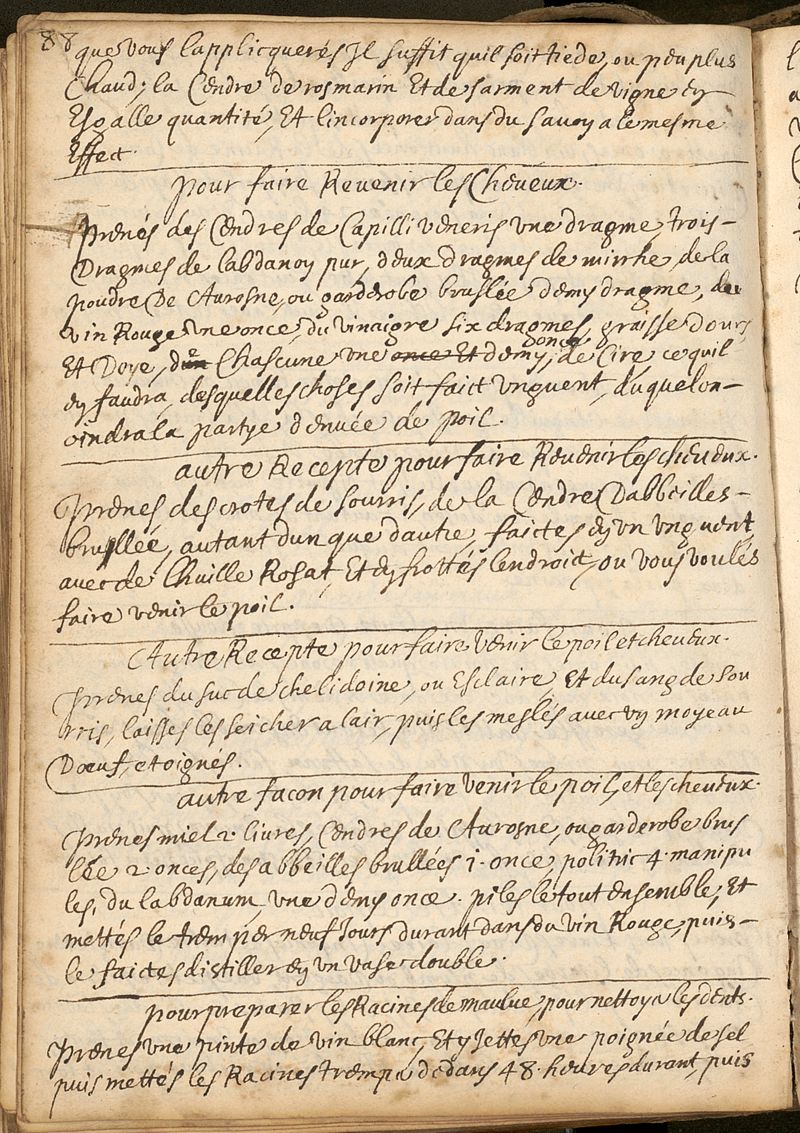 88
que vous lapplicquerés Jl suffit quil soit tiede, ou peu plus
Chaud; la Cendre de rosmarin Et de sarment de vigne en
Esgalle quantité, Et lincorporer dans du savon a le mesme
Effect.
pour faire Revenir les Cheveux.
Prenés des Cendres de Capilli veneris vne dragme, trois
Dragmes de labdanon pur, deux dragmes de mirrhe, de la
poudre De Aurosne, ou garderobe bruslée demy dragme, de
vin Rouge vne once, du vinaigre six dragmes, graisse dours
Et Doye, de Chascune vne once Et demy, once de Cire ce quil
en faudra, desquelles choses soit faict vnguent, duquel on
oindra la partye denuée de poil.
autre Recepte pour faire Revenir les cheueux.
Prenes des crotes de sourris, de la Cendre Dabbeilles
bruslleé, autant dun que dautre, faictes en vn vnguent,
avec de Lhuille Rosat, Et en frottés lendroict, ou vous voulés
faire venir le poil.
Autre Recepte pour faire Venir le poil et cheueux.
Prenes du suc de chelidoine, ou Esclaire, Et du sang de sou
rris, laisses les seicher a lair, puis les meslés avec vn moyeau
Dœuf, et oignés.
autre facon pour faire venir le poil, et les cheueux.
Prenes miel 2. livres, Cendres de Aurosne, ou garderobe brus
lée 2. onces, des abbeilles brullées 1. once, politric 4. manipu
les, du labdanum, vne demy once. piles le tout ensemble, Et
mettés le tremper neuf Jours durant dans du vin Rouge, puis
le faictes distiller en vn vase double.
pour preparer les Racines de maulue, pour nettoyer les dents.
Prenes vne pinte de vin blanc, Et y Jettes vne poignée de sel
puis mettés les Racines tremper dedans 48. heures durant, puis